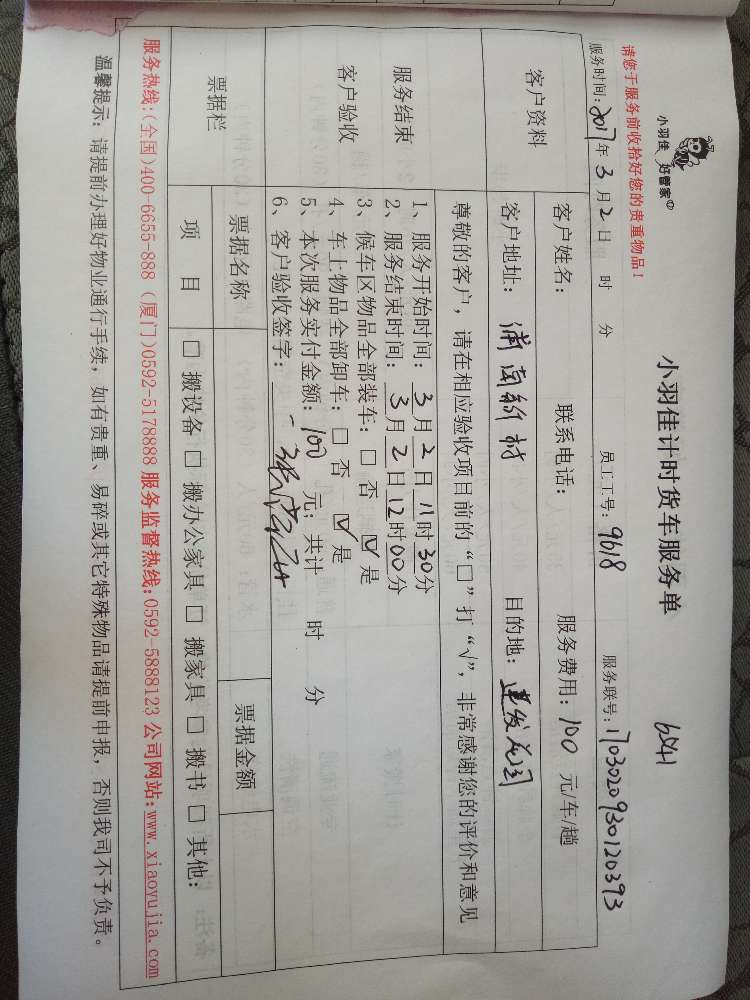 小羽佳 好管家
小羽佳计时货车服务单 6541
请您于服务前收拾好您的贵重物品！
服务时间：2017年3月2日 时 分 员工工号：9618 服务联号：170302093012039​3
客户资料
客户姓名： 联系电话： 服务费用：100元/车/趟
客户地址：莆南新村 目的地：建发花园
服务结束
客户验收
尊敬的客户，请在相应验收项目前的“□”打“√”，非常感谢您的评价和意见
1、服务开始时间：3月2日11时30分
2、服务结束时间：3月2日12时00分
3、候车区物品全部装车：□否 ☑是
4、车上物品全部卸车：□否 ☑是
5、本次服务实付金额：100元；共计 时 分
6、客户验收签字：
票据栏
票据名称 票据金额
项目 □搬设备□搬办公家具□搬家具□搬书□其他：
服务热线：(全国)400-6655-888（厦门)0592-5178888 服务监督热线：0592-5888123 公司网站：www.xiaoyujia.com
温馨提示：请提前办理好物业通行手续，如有贵重、易碎或其它特殊物品请提前申报，否则我司不予负责。